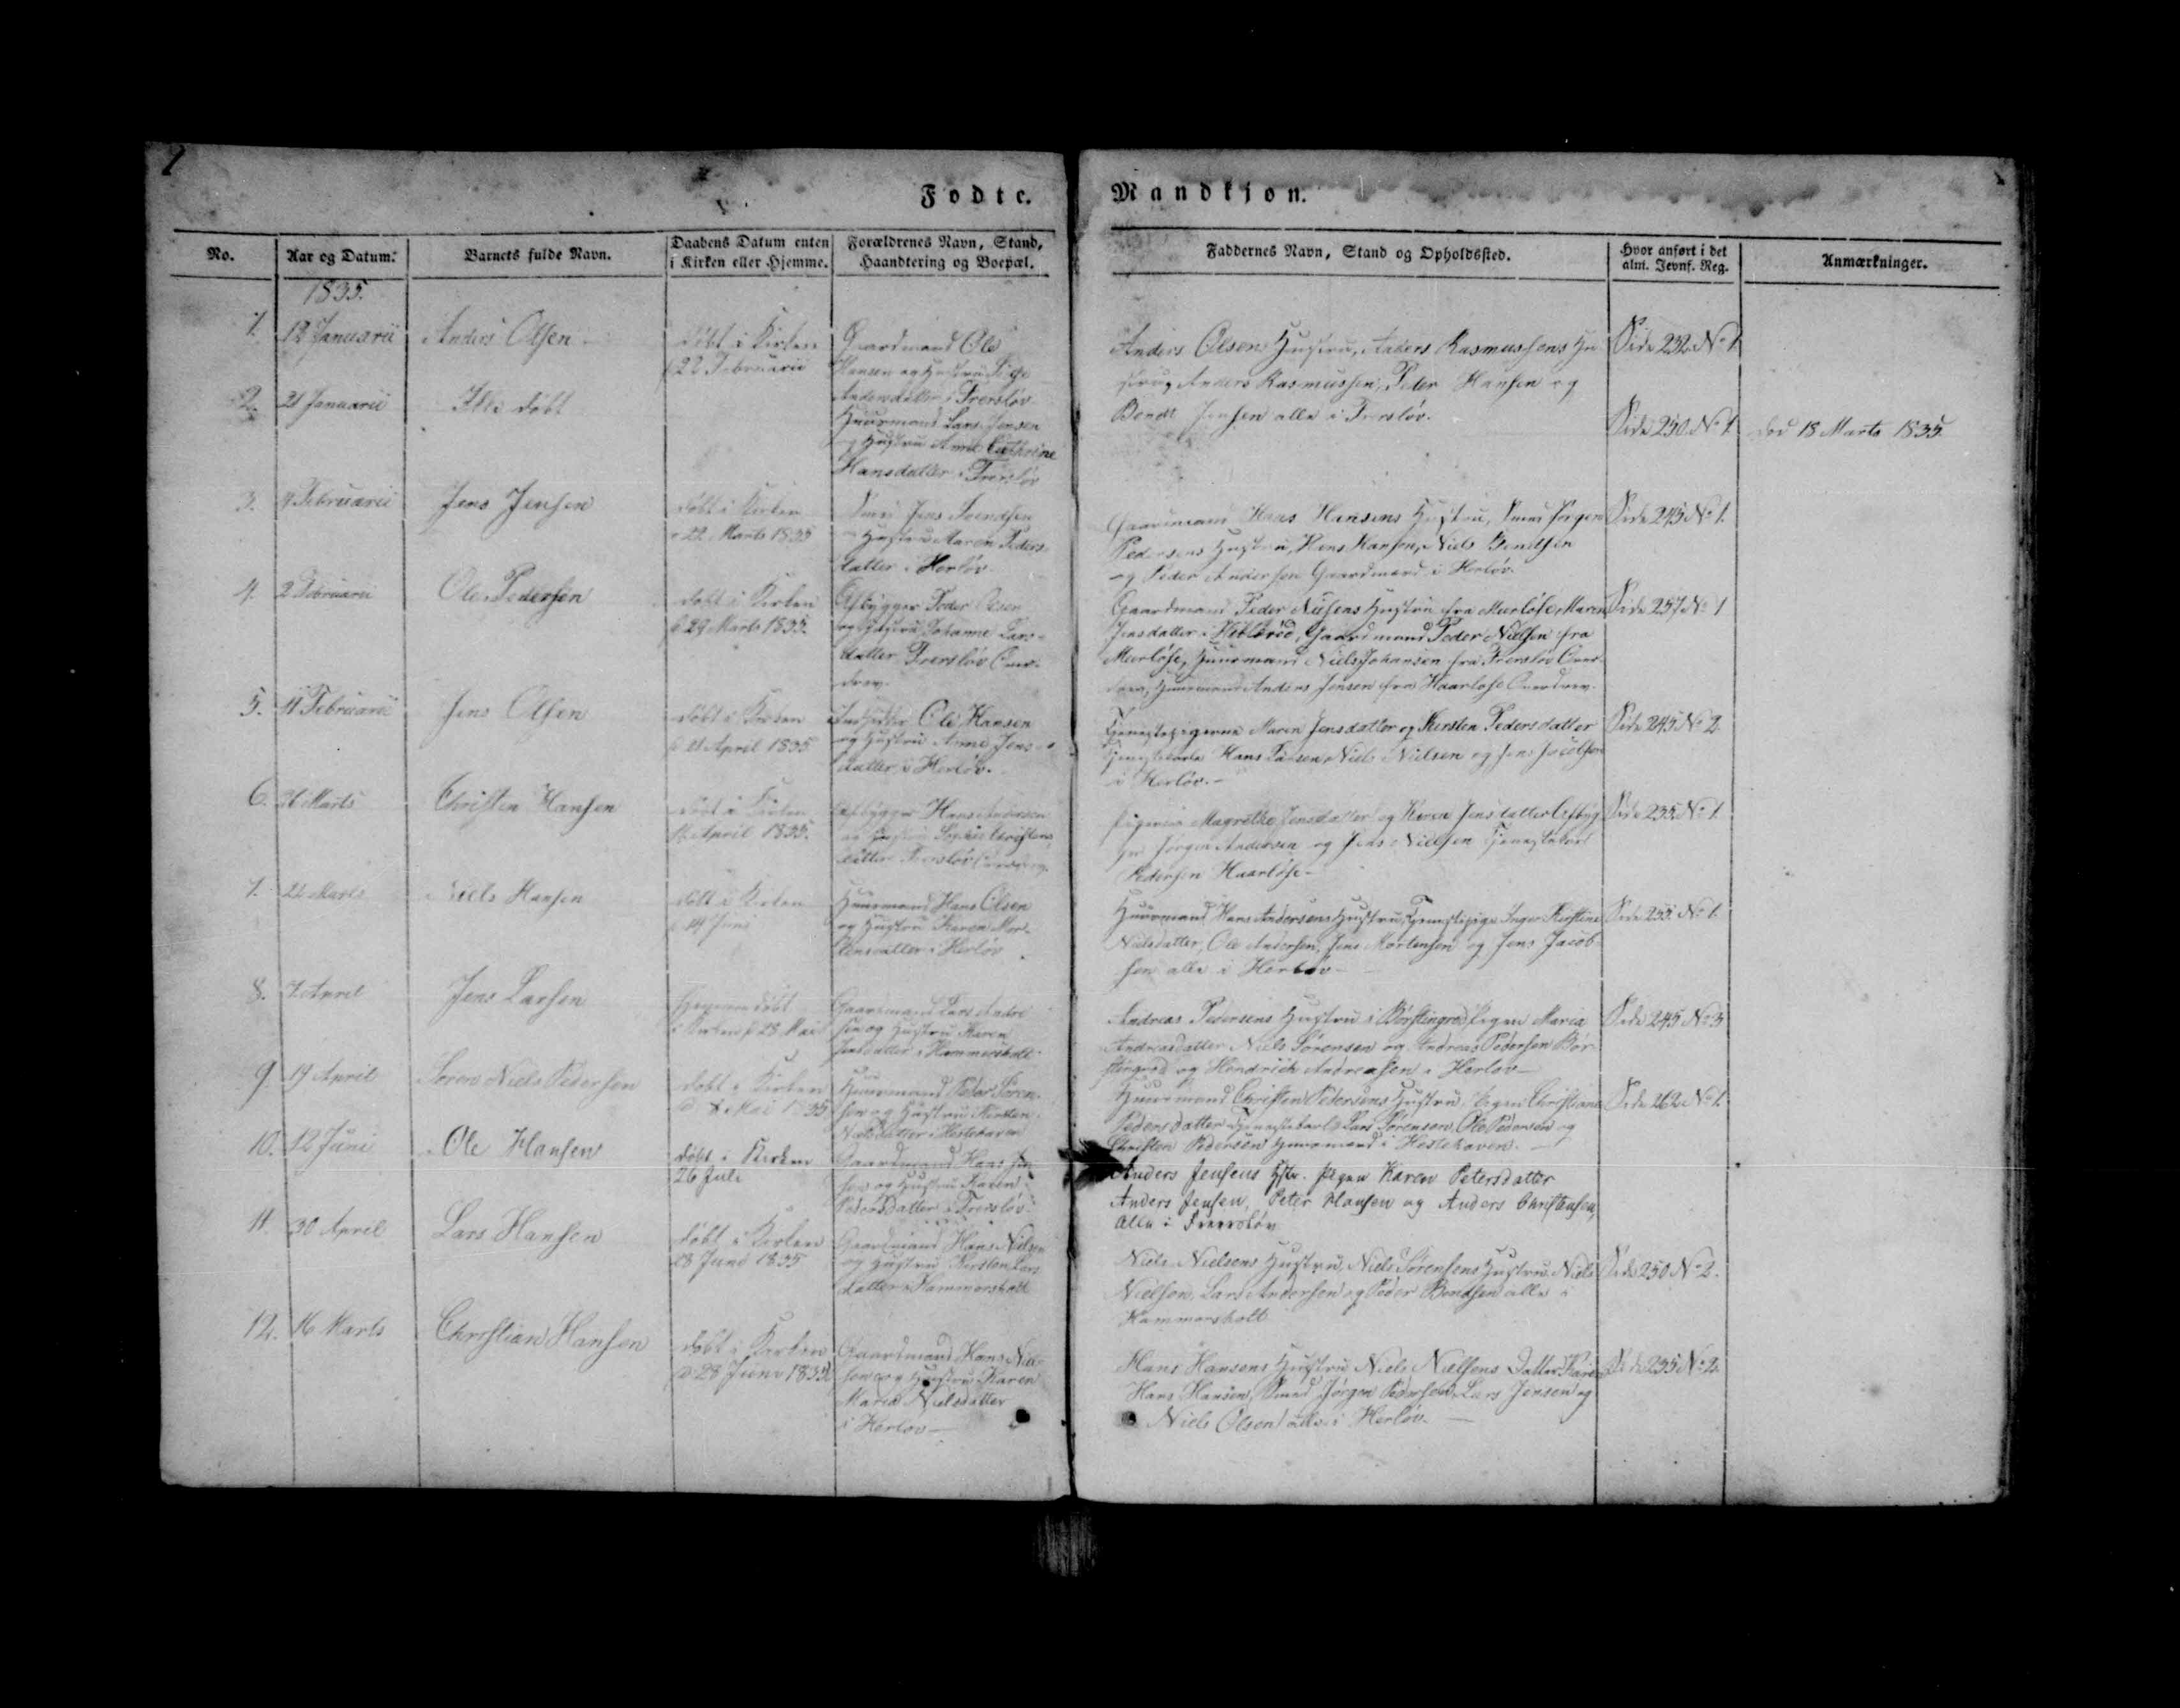 1
Fødte.
Mandkjøn.
No.
Aar og Datum.
Barnets fulde Navn.
Daabens Datum enten
i Kirken eller Hjemme.
Forældrenes Navn, Stand,
Haandtering og Boepæl.
Faddernes Navn, Stand og Opholdssted.
Hvor anført i det
alm. Jevnf. Reg.
Anmærkninger.
1835.
1.
12 Januarii
Anders Olsen
døbt i Kirken
22 Februarii
Gaardmand Ole
Hansen og Hustru
i Frerslöv
Anders Olsens Hustru, Anders Rasmussens Hu
stru, Anders Rasmussen, Peder Hansen og
Bendt Jensen alle i Frerslöv.
Side 232 No 1
2.
21 Januarii
Ikke døbt
Huusmand Lars Jensen
og Hustru Anne Cathrine
Hansdatter i Frerslöv
Side 250. No 1.
død 18 Marts 1835
3.
Februarii
Jens Jensen
døbt i Kirken
22 Marts 1835
Smed Jens Svendsen
Hustru Karen Peders
datter i Herlöv
Gaardmand Hans Hansens Hustru, Smed Jørgen
Pedersens Hustru, Hans Hansen, Niels Bendtsen
og Peder Andersen Gaardmænd i Herlöv
Side 245 No 1.
4.
2 Februarii
Ole Pedersen
døbt i Kirken
d 29 Marts 1835.
Aftbygger Peder Olsen
og Hustru Johanne Lars-
datter Frerslöv Over-
drev.
Gaardmand Peder Nielsens Hustru fra Meerløse, Maren
Jensdatter i, Gaardmand Peder Nielsen fra
Meerløse, Huusmand Niels Johansen fra Frerslöv Over
drev, Huusmand Anders Jensen fra Haarløse Overdrev.
Side 257 No 1
5.
11 Februarii
Jens Olsen
døbt i Kirken
d 21 April 1835
Indsidder Ole Hansen
og Hustru Anne Jens-
datter i Herlöv.
Tjenestepigerne Maren Jensdatter og Kirsten Pedersdatter
Tjenestekarle Hans Larsen, Niels Nielsen og Jens Jacobsen
i Herlöv.
Side 245 No 2.
6.
26 Marts
Christen Hansen
døbt i Kirken
April 1835.
Aftbygger Hans Andersen
og Hustru Sophie Christens
datter Frerslöv Overdrev.
Pigerne Magrethe Jensdatter og Karen Jensdatter Aftbyg
ger Jørgen Andersen og Jens Nielsen Tjenestekarl
Pedersen Haarløse
Side 235 No 1.
7.
22 Marts
Niels Hansen
døbt i Kirken
d 14 Juni
Huusmand Hans Olsen
og Hustru Karen Mor-
tensdatter i Herlöv
Huusmand Hans Andersens Hustru, Tjenestepige Inger Kirstine
Nielsdatter, Ole Andersen, Jens Mortensen og Jens Jacob-
sen alle i Herlöv
No 1.
8.
April
Jens Larsen
Hjemmedøbt
i Kirken d 28 Mai
Gaardmand Lars Andre
sen og Hustru Karen
Jensdatter i Hammersholt
Andreas Pedersens Hustru i Børstingrød Pigen Maria
Andreasdatter Niels Sørensen og Andreas Pedersen Bør-
stingrød og Hendrich Andreasen i Herlöv
Side 245 No 3
9
19 April
Søren Niels Pedersen
døbt i Kirken
Mai 1835
Huusmand Peder Søren-
sen og Hustru Kirsten
Nielsdatter i Hestehaven
Huusmand Christen Pedersens Hustru, Pigen Christiane
Pedersdatter Tjenestekarl Lars Sørensen, Ole Pedersen og
Christen Pedersen Huusmænd i Hestehaven.
Side 262 No 1.
10.
12 Juni
Ole Hansen
døbt i Kirken
26 Juli
Gaardmand Hans Jen
sen og Hustru Karen
Pedersdatter i Frerslöv
Anders Jensens Hstr. pigen Karen Petersdatter
Anders Jensen, Peter Hansen og Anders Christensen,
alle i Freerslöv
11.
30 April
Lars Hansen
døbt i Kirken
28 Juni 1835
Gaardmand Hans Nielsen
og Hustru Kirsten Lars
datter i Hammersholt
Niels Nielsens Hustru, Niels Sørensens Hustru, Niels
Nielsen, Lars Andersen og Peder Bendsen alle i
Hammersholt
Side 250 No 2.
12.
16 Marts
Christian Hansen
døbt i Kirken
d 28 Juni 1835
Gaardmand Hans Niel-
sen og Hustru Karen
Maria Nielsdatter
i Herlöv
Hans Hansens Hustru, Niels Nielsens Datter Karen
Hans Hansen, Smed Jørgen Pedersen, Lars Jensen og
Niels Olsen alle i Herlöv.
Side 235 No 2.